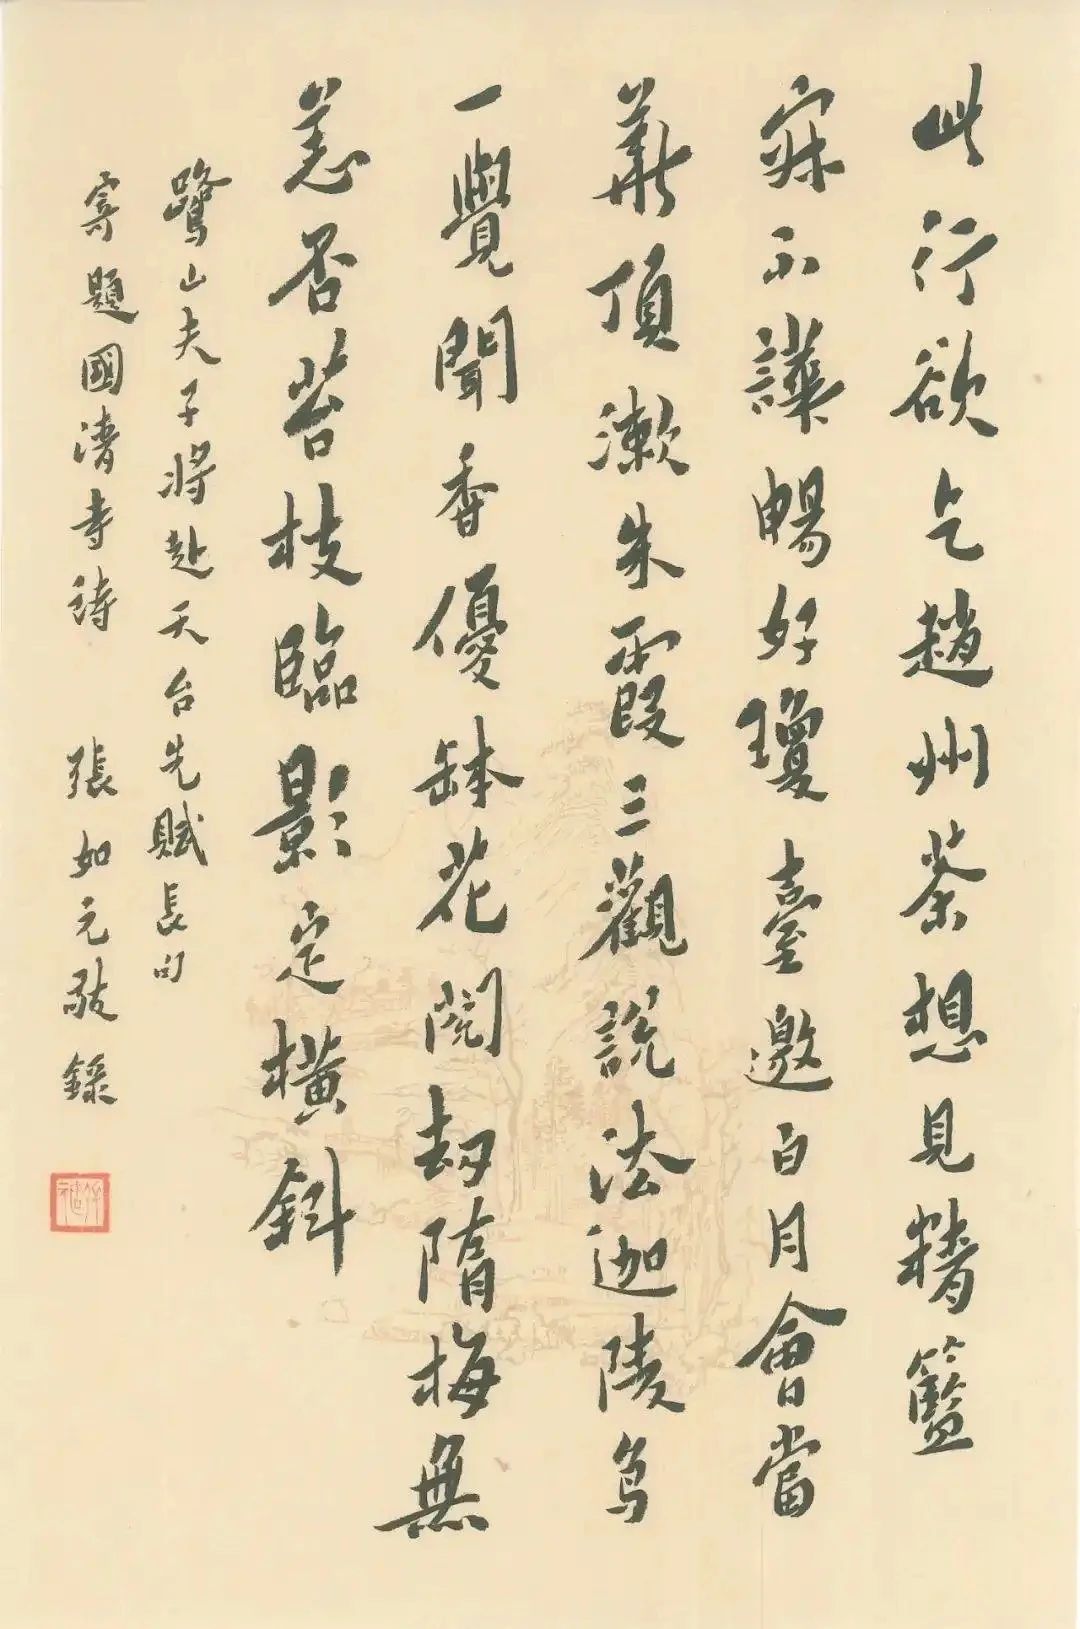 此行欲乞趙州茶想見精籃
寂不譁暢好瓊臺邀白月會當
華頂漱朱霞三觀說法迦陵鳥
一覺聞香優缽花閱劫隋梅無
恙否苔枝臨影定橫斜
鷺山夫子將赴天台先賦長句
寄題國清寺詩 張如元敬錄